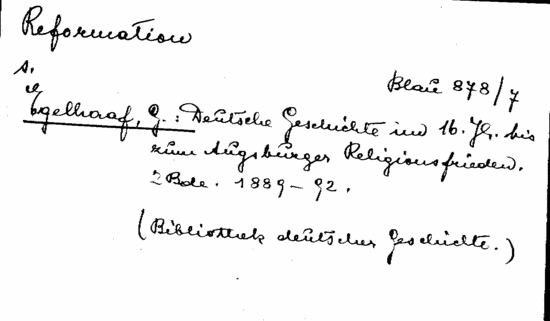 Reformation
s.
Blau 878/7
Egelhaaf, G.: Deutsche Geschichte im 16. Jh. bis
zum Augsburger Religionsfrieden.
2 Bde. 1889-92.
(Bibliothek deutscher Geschichte.)